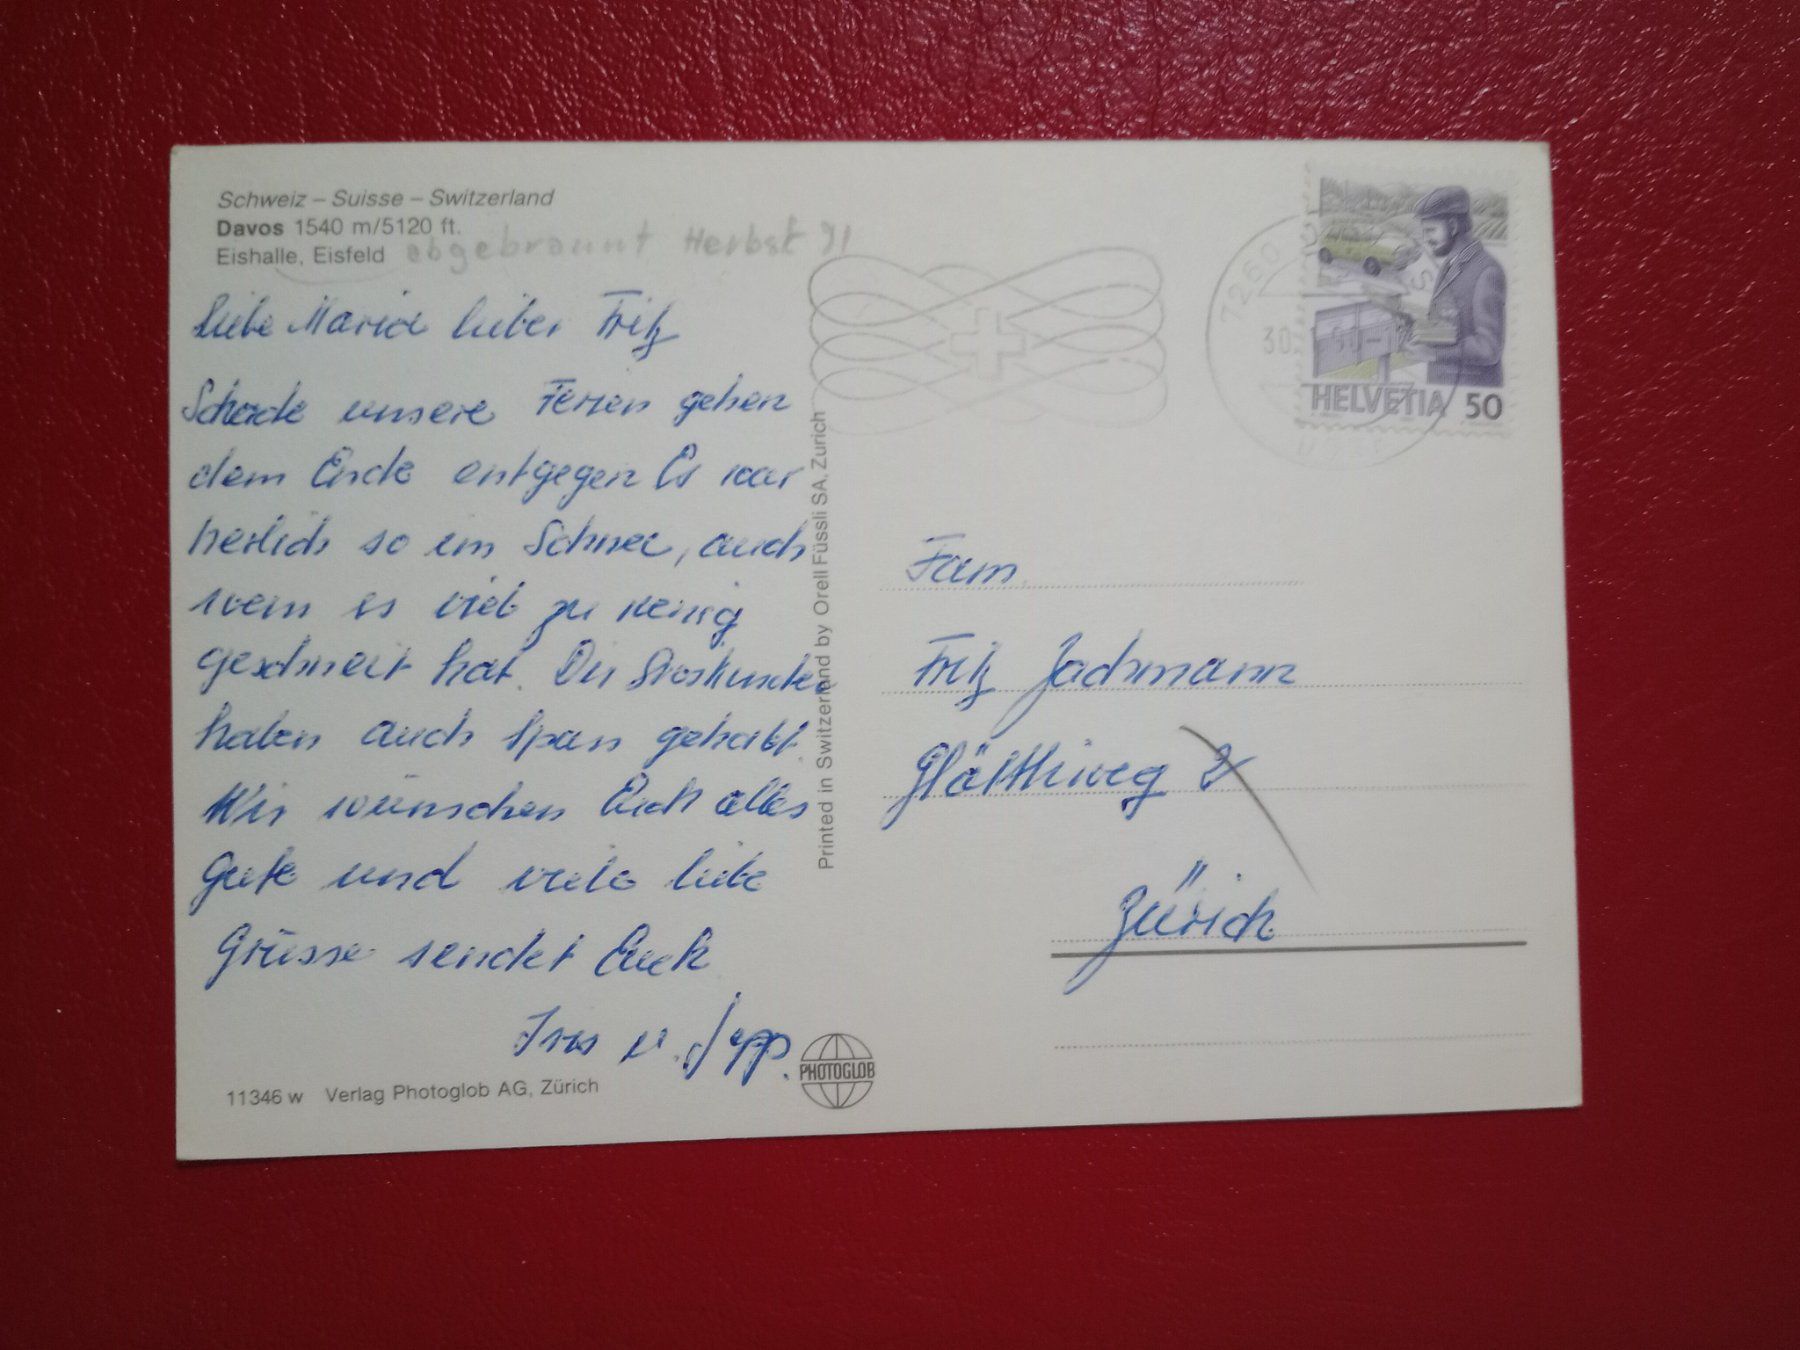 Schweiz – Suisse – Switzerland
Davos 1540 m/5120 ft.
Eishalle, Eisfeld abgebrannt Herbst 91
Liebe Maria lieber Fritz
Schade unsere Ferien gehen
dem Ende entgegen Es war
herlich so im Schnee, auch
wem es viel zu wenig
geschneit hat. Die
haben auch Span gehabt.
Wir wünschen Euch alles
Gute und viele liebe
Grüsse sendet Euch
u. Sepp.
11346 w Verlag Photoglob AG, Zürich
PHOTOGLOB
Printed in Switzerland by Orell Füssli SA, Zürich
7260
30
HELVETIA 50
Fam.
Fritz Jachmann
Glättliweg 2
Zürich